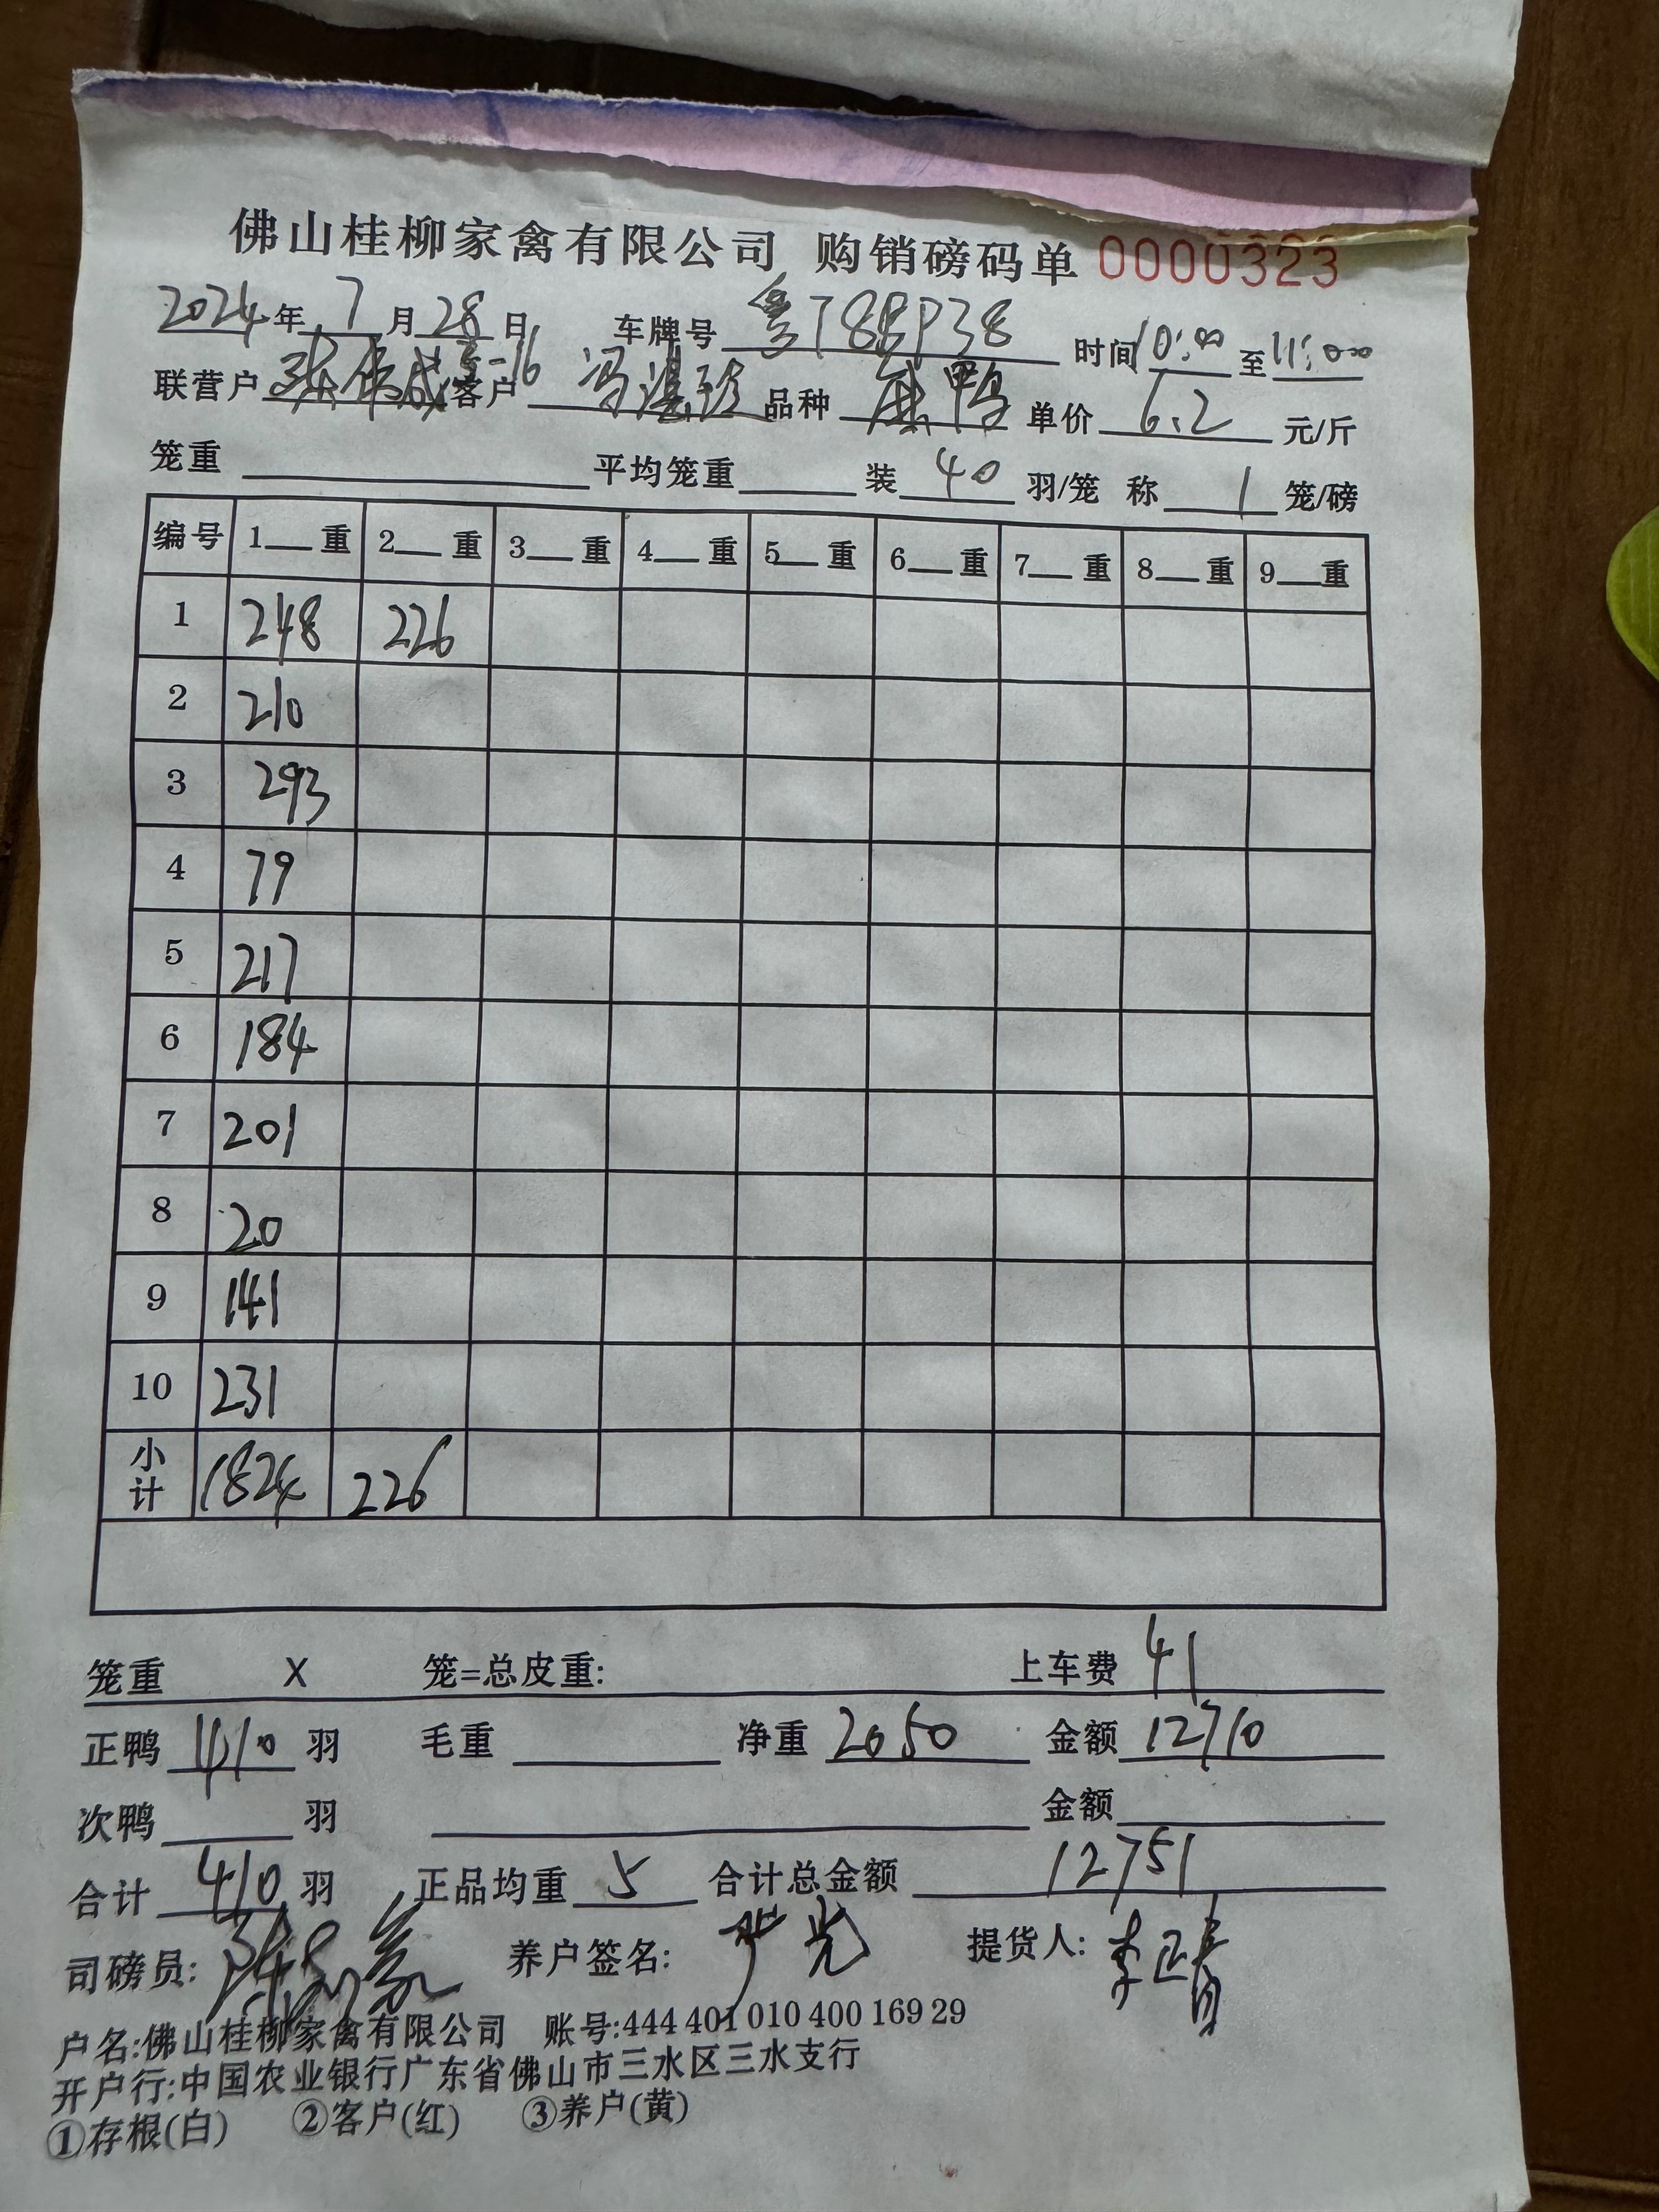 佛山桂柳家禽有限公司 购销磅码单 0000323
2024年 7 月 28 日 车牌号 粤T8 P38 时间 10:00 至 11:00
联营户 张 成 -16 客户 冯 品种 麻鸭 单价 6.2 元/斤
笼重 平均笼重 装 40 羽/笼 称 1 笼/磅
编号 1 重 2 重 3 重 4 重 5 重 6 重 7 重 8 重 9 重
1 248 226
2 210
3 293
4 79
5 217
6 184
7 201
8 20
9 141
10 231
小计 1824 226
笼重 X 笼=总皮重: 上车费 41
正鸭 410 羽 毛重 净重 2050 金额 12710
次鸭 羽 金额
合计 410 羽 正品均重 5 合计总金额 12751
司磅员: 养户签名: 光 提货人: 李
户名:佛山桂柳家禽有限公司 账号:444 401 010 400 169 29
开户行:中国农业银行广东省佛山市三水区三水支行
①存根(白) ②客户(红) ③养户(黄)